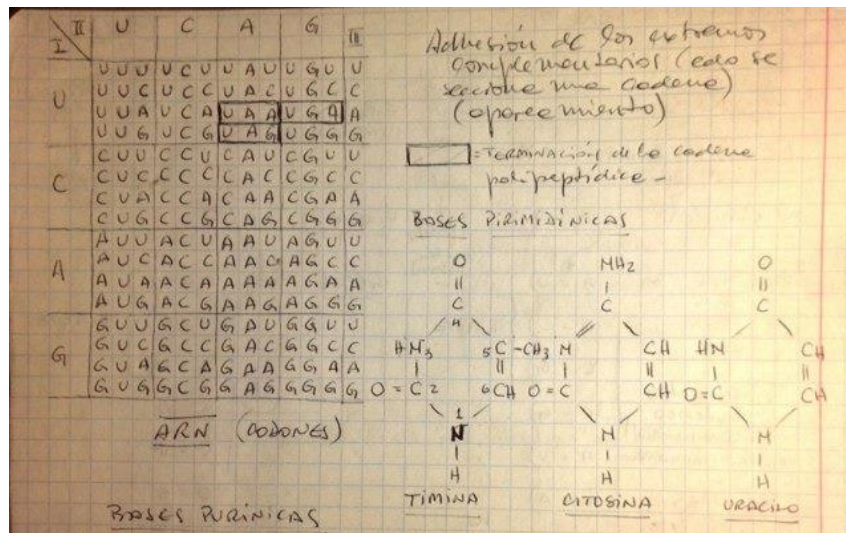 II U C A G III
I
U
UUU UCU UAU UGU U
UUC UCC UAC UGC C
UUA UCA UAA UGA A
UUG UCG UAG UGG G
C
CUU CCU CAU CGU U
CUC CCC CAC CGC C
CUA CCA CAA CGA A
CUG CCG CAG CGG G
A
AUU ACU AAU AGU U
AUC ACC AAC AGC C
AUA ACA AAA AGA A
AUG ACG AAG AGG G
G
GUU GCU GAU GGU U
GUC GCC GAC GGC C
GUA GCA GAA GGA A
GUG GCG GAG GGG G
ARN (CODONES)
BASES PURÍNICAS
Adhesión de los extremos
complementarios (cdo se
secciona una cadena)
(apareamiento)
=TERMINACIÓN de la cadena
polipeptídica -
BASES PIRIMIDÍNICAS
O NH2 O
C C C
4
HN3 5C-CH3 N CH HN CH
O=C2 6CH O=C CH O=C CH
1
N N N
H H H
TIMINA CITOSINA URACILO